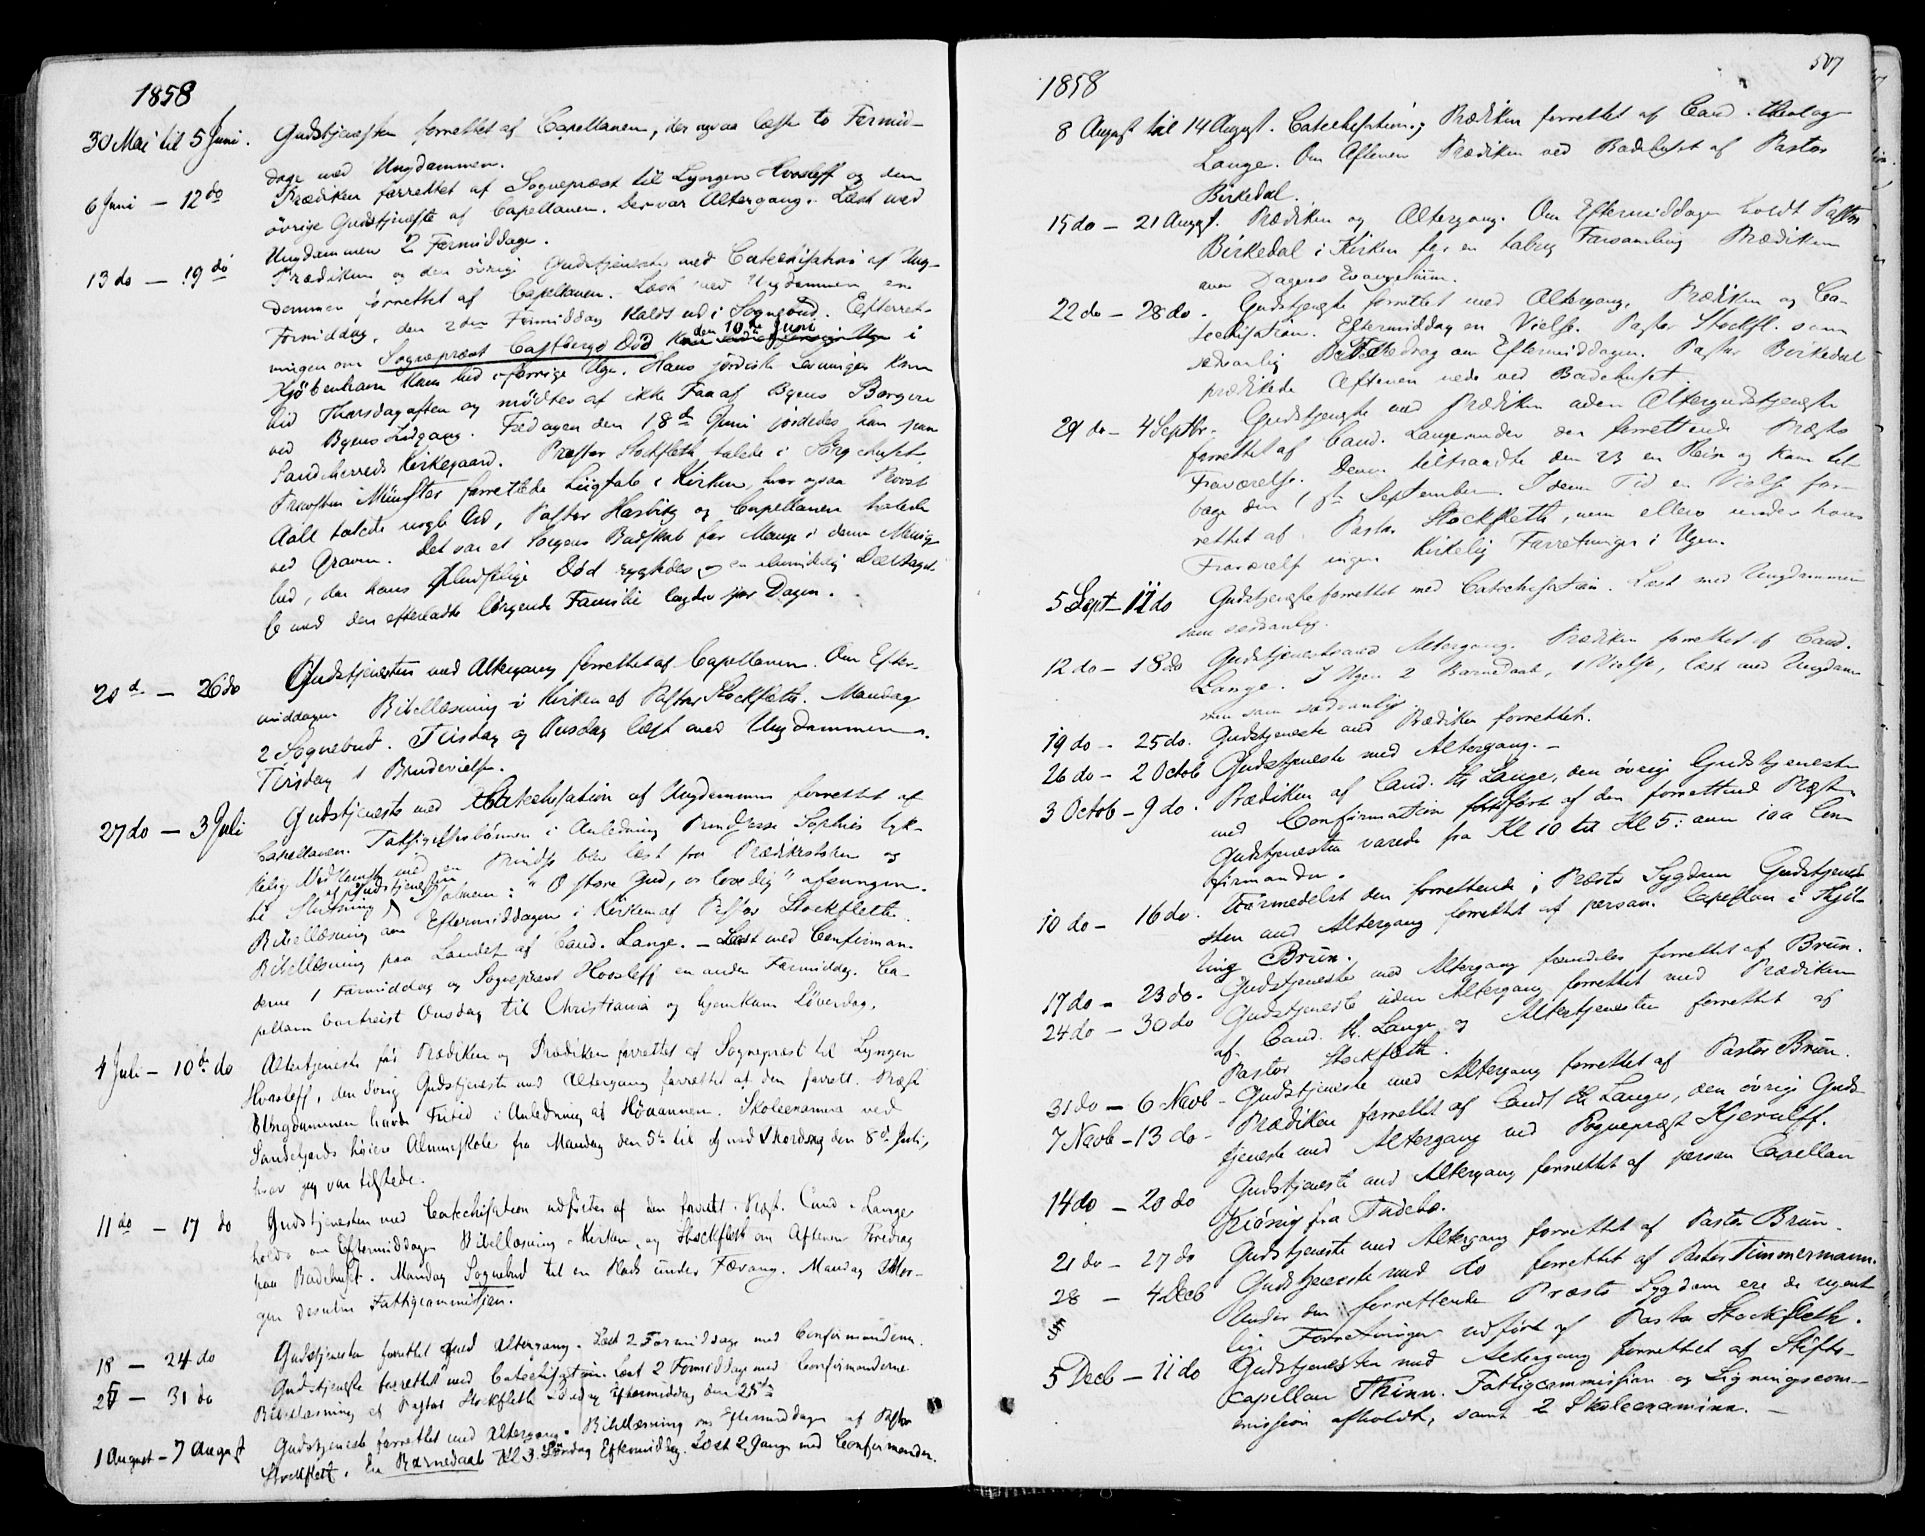 1858
30 Mai til 5 Juni. Gudstjenesten forrettet af Capellanen, der ogsaa læste to Formid-
dage med Ungdommen.
6 Juni — 12 do Prædiken forrettet af Sognepræst til Lyngen Hvosleff og den
övrige Gudstjeneste af Capellanen. Der var Altergang. Læst med
Ungdommen 2 Formiddage.
13 do — 19 do Prædiken og den övrige Gudstjeneste med Catechisation af Ung-
dommen forrettet af Capellanen. Læst med Ungdommen en
Formiddag, den 2den Formiddag kaldt ud i Sognebud. Efterret-
ningen om Sognepræst Castbergs Död den 10de Juni i
Kjöbenhavn kom hid i forrige Uge. Hans jordiske Levninger kom
hid Thorsdagaften og mödtes af ikke Faa af Byens Borgere
ved Byens Indgang. Fredagen den 18de Juni jordedes han paa
Sandeherreds Kirkegaard. Pastor Stockfleth talede i Sörgehuset,
Provsten Münster forrettede Liigtale i Kirken, hvor ogsaa Provst
Aall talede nogle Ord, Pastor Hasberg og Capellanen talede
ved Graven. Det var et Sorgens Budskab for Mange i denne Menig-
hed, da hans pludselige Död rygtedes, og en almindelig Deeltagel-
se med den efterladte sörgende Familie lagdes for Dagen.
20 d. — 26 do Gudstjenesten med Altergang forrettet af Capellanen. Om Efter-
middagen Bibellæsning i Kirken af Pastor Stockfleth. Mandag
2 Sognebud. Tirsdag og Onsdag læst med Ungdommen.
Tirsdag 1 Brudevielse.
27 do — 3 Juli Gudstjeneste med Catechisation af Ungdommen forrettet af
Capellanen. Taksigelsesbönnen i Anledning Prindsesse Sophies lyk-
kelige Nedkomst med en Prinds blev læst fra Prædikestolen og
til Slutning af Gudstjenesten Psalmen: "O store Gud, vi love dig" afsungen.
Bibellæsning om Eftermiddagen i Kirken af Pastor Stockfleth.
Bibellæsning paa Landet af Cand. Lange. — Læst med Confirman-
derne 1 Formiddag og Sognepræst Hvosleff en anden Formiddag. Ca-
pellanen bortreist Onsdag til Christiania og hjemkom Löverdag.
4 Juli — 10de do Altertjeneste för Prædiken og Prædiken forrettet af Sognepræst til Lyngen
Hvosleff, den övrige Gudstjeneste med Altergang forrettet af den forrett. Præst.
Ungdommen havde Fritid i Anledning af Höaannen. Skoleexamen ved
Sandefjords höiere Almueskole fra Mandag den 5te til og med Thorsdag den 8de Juli,
hvor jeg var tilstede.
11 do — 17 do Gudstjenesten med Catechisation udfört af den forrett. Præst. Cand. Lange
holdt om Eftermiddagen Bibellæsning i Kirken, og Stockfleth om Aftenen Foredrag
paa Badehuset. Mandag Sognebud til en Plads under Fævang. Mandag Mor-
gen desuden Fattigcommission.
18 — 24 do Gudstjenesten forrettet med Altergang. Læst 2 Formiddage med Confirmanderne.
25 — 31 do Gudstjeneste forrettet med Catechisation. Læst 2 Formiddage med Confirmanderne
Bibellæsning af Pastor Stockfleth Söndag Eftermiddag den 25de
1 August — 7 August Gudstjeneste forrettet med Altergang. Bibellæsning om Eftermiddagen af Pastor
Stockfleth. En Barnedaab Kl 3. Söndag Eftermiddag. Læst 2 Gange med Confirmander.
507
1858
8 August til 14 August. Catechisation; Prædiken forrettet af Cand. theolog
Lange. Om Aftenen Prædiken ved Badehuset af Pastor
Birkedal.
15 do — 21 August. Prædiken og Altergang. Om Eftermiddagen holdt Pastor
Birkedal i Kirken for en talrig Forsamling Prædiken
over Dagens Evangelium.
22 do — 28 do. Gudstjeneste forrettet med Altergang. Prædiken og Ca-
techisation. Eftermiddag en Vielse. Pastor Stockfl. som
sedvanlig Foredrag om Eftermiddagen. Pastor Birkedal
prædikede Aftenen nede ved Badehuset.
29 do — 4 Septbr. Gudstjeneste med Prædiken uden Altergudstjeneste
forrettet af Cand. Lange under den forrettende Præsts
Fraværelse. Denne tiltraadte den 23 en Reise og kom til-
bage den 1ste September. I denne Tid en Vielse for-
rettet af Pastor Stockfleth, men ellers under hans
Fraværelse ingen Kirkelig Forretninger i Ugen.
5 Sept — 11 do Gudstjeneste forrettet med Catechisation. Læst med Ungdommen
som sædvanlig.
12 do — 18 do Gudstjeneste med Altergang. Prædiken forrettet af Cand.
Lange. I Ugen 2 Barnedaab, 1 Vielse, læst med Ungdom-
men som sædvanlig.
19 do — 25 do. Gudstjeneste med Prædiken forrettet.
26 do — 2 Octob Gudstjeneste med Altergang. —
3 Octob — 9 do. Prædiken af Cand. th Lange, den övrige Gudstjeneste
med Confirmation udfört af den forrettende Præst.
Gudstjenesten varede fra Kl 10 til Kl 5: Con-
firmander.
10 do — 16 do. Formedelst den forrettende Præsts Sygdom Gudstjene-
sten med Altergang forrettet af person. Capellan i Thjöl-
ling Brün.
17 do — 23 do. Gudstjeneste med Altergang forrettet af Brün.
24 do — 30 do Gudstjeneste uden Altergang forrettet med Prædiken
af Cand. th. Lange og Altertjenesten forrettet af
Pastor Stockfleth.
31 do — 6 Novb — Gudstjeneste med Altergang forrettet af Pastor Brün.
7 Novb — 13 do — Prædiken forrettet af Cand th Lange, den övrige Guds-
tjeneste med Altergang ved Sognepræst Kjerulff.
14 do — 20 do Gudstjeneste med Altergang forrettet af person Capellan
Kiönig fra Fredebo.
21 do — 27 do Gudstjeneste med Altergang forrettet af Pastor Brün.
28 — 4 Decb Gudstjeneste med do forrettet af Pastor Timmermann.
Under den forrettende Præsts Sygdom ere de ugent-
lige Forretninger udfört af Pastor Stockfleth.
5 Decb — 11 do Gudstjenesten med Altergang forrettet af Stifts-
capellan Thinn. Fattigcommission og Ligningscom-
mission afholdt, samt 2 Skoleexamina. —